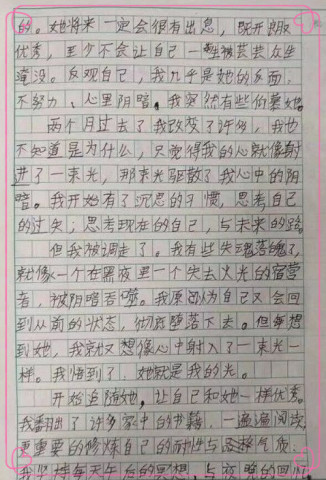 的。她将来一定会很有出息，既开朗
优秀，至少不会让自己一生被芸芸众生
淹没。反观自己，我几乎是她的反面，
不努力、心里阴暗。我突然有些仰慕她。
两个月过去了我改变了许多，我也
不知道是为什么，只觉得我的心就像射
进了一束光，那束光驱散了我心中的阴
暗。我开始有了沉思的习惯，思考自己
的过失；思考现在的自己，与未来的路。
但我被调走了。我有些失魂落魄了，
就像一个在黑夜里一个失去火光的宿营
者，被阴暗吞噬。我原以为自己又会回
到从前的状态，彻底堕落下去。但每想
到她，我就又想像心中射入了一束光一
样。我悟到了，她就是我的光。
开始追随她，让自己和她一样优秀。
我翻出了许多家中的书籍，一遍遍阅读，
更重要的修炼自己的耐性与气质，
我坚持每天午后的冥想，与夜晚的回忆